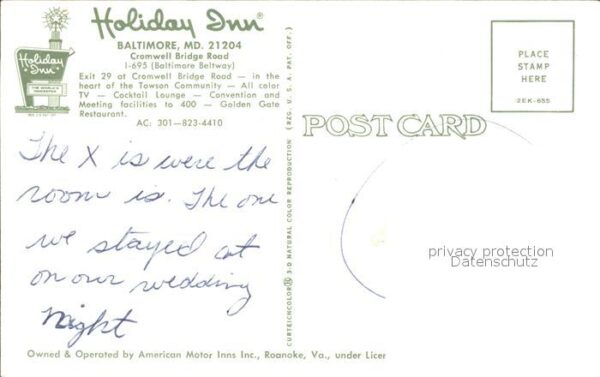 Holiday Inn®
BALTIMORE, MD. 21204
Cromwell Bridge Road
I-695 (Baltimore Beltway)
Exit 29 at Cromwell Bridge Road — in the
heart of the Towson Community — All color
TV — Cocktail Lounge — Convention and
Meeting facilities to 400 — Golden Gate
Restaurant.
AC: 301—823-4410
Holiday
Inn®
The X is were the
room is. The one
we stayed at
on our wedding
night
Owned & Operated by American Motor Inns Inc., Roanoke, Va., under Licer
CURTEICHCOLOR® 3-D NATURAL COLOR REPRODUCTION (REG. U. S. A. PAT. OFF.)
POST CARD
PLACE
STAMP
HERE
2EK-655
privacy protection
Datenschutz